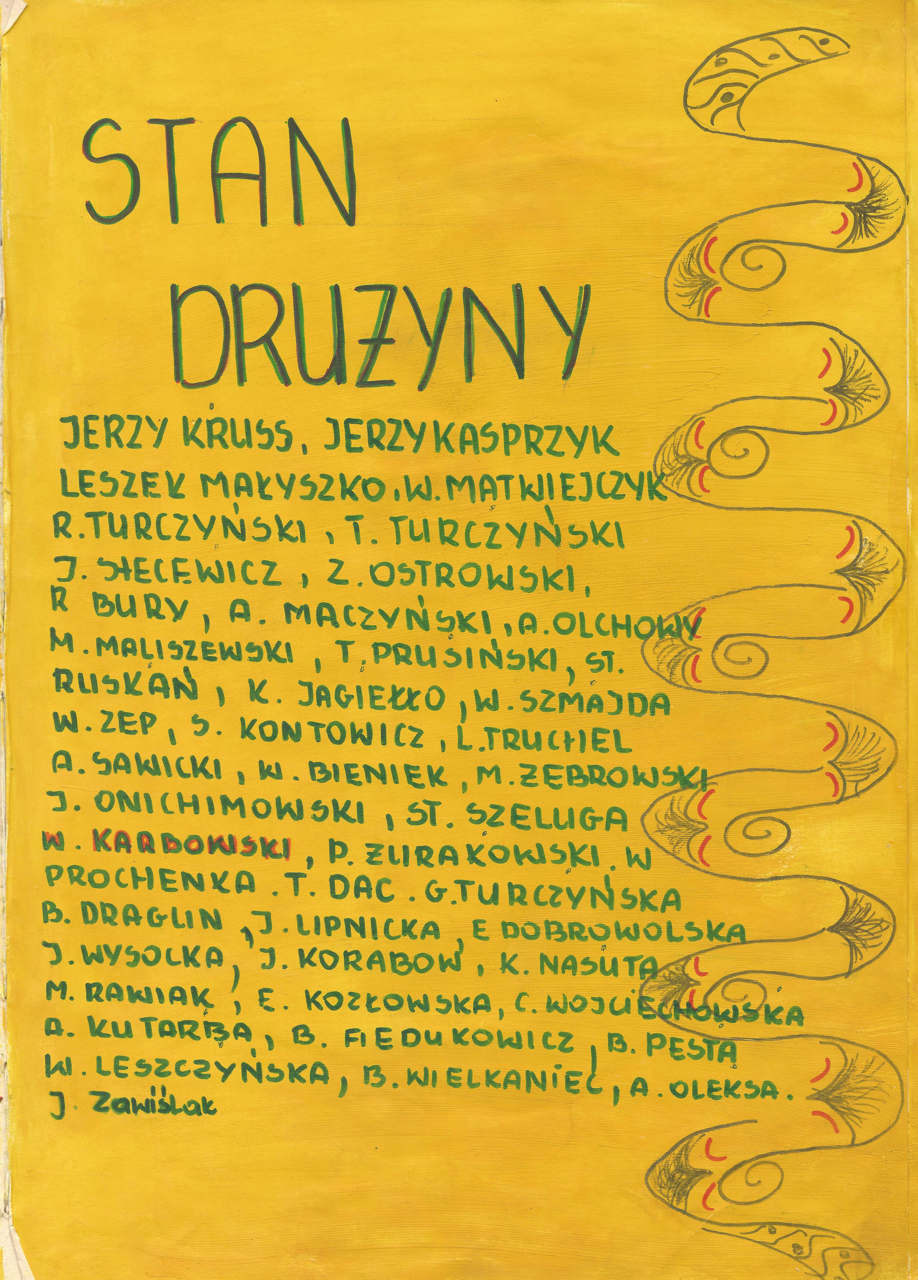 STAN
DRUŻYNY
JERZY KRUSS, JERZY KASPRZYK
LESZEK MAŁYSZKO, W. MATWIEJCZYK
R. TURCZYŃSKI, T. TURCZYŃSKI
J. SIECEWICZ, Z. OSTROWSKI,
R BURY, A. MACZYŃSKI, A. OLCHOWY
M. MALISZEWSKI, T. PRUSIŃSKI, ST.
RUSKAŃ, K. JAGIEŁŁO, W. SZMAJDA
W. ZEP, S. KONTOWICZ, L. TRUCHEL
A. SAWICKI, W. BIENIEK, M. ZEBROWSKI
J. ONICHIMOWSKI, ST. SZELUGA
W. KARBOWSKI, P. ZURAKOWSKI. W
PROCHENKA. T. DAC. G. TURCZYŃSKA
B. DRAGLIN, J. LIPNICKA, E DOBROWOLSKA
J. WYSOCKA, J. KORABOW, K. NASUTA
M. RAWIAK, E. KOZŁOWSKA, C. WOJCIECHOWSKA
A. KUTARBA, B. FIEDUKOWICZ, B. PESTA
W. LESZCZYŃSKA, B. WIELKANIEC, A. OLEKSA.
J. Zawiślak